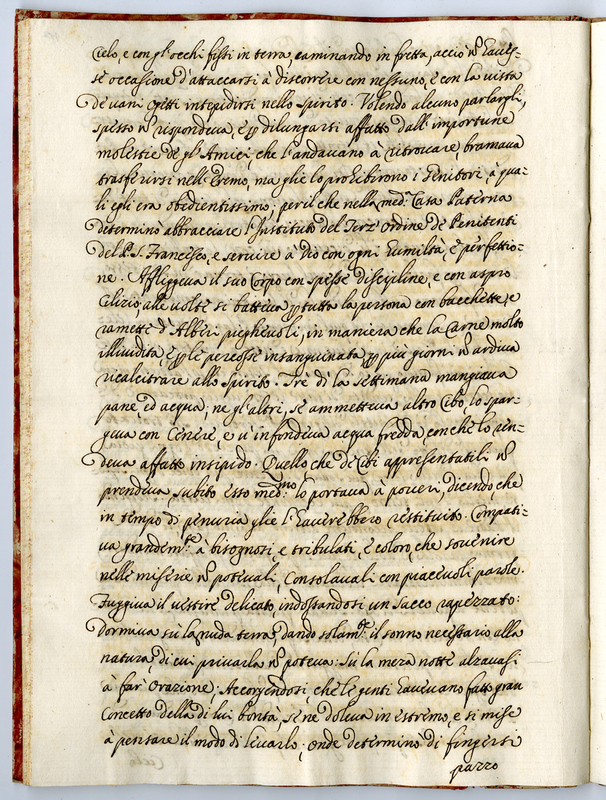 Cielo, e con gl'occhi fissi in terra, caminando in fretta, acciò ñ haves-
se occasione d'attaccarsi à discorrere con nessuno, e con la vista
de vani ogetti intepidirsi nello spirito. Volendo alcuno parlargli,
spesso ñ rispondeva, e p dilungarsi affatto dall'importune
molestie de gl'Amici, che l'andavano à ritrovare, bramava
trasferirsi nell'Eremo, ma glie lo prohibirono i Genitori, à qua-
li egli era obedientissimo; per il che nella med.ª Casa Paterna
determinò abbracciare l'Instituto del Terz'Ordine de Penitenti
del P. S. Francesco, e servire à Dio con ogni humiltà, e perfettio-
ne. Affliggeva il suo Corpo con spesse discipline, e con aspro
Cilizio, alle volte si batteva p tutta la persona con bacchette, e
ramette d'Alberi pieghevoli, in maniera che la Carne molto
illividita, e p le percosse insanguinata p più giorni ñ ardiva
ricalcitrare allo spirito. Tre dì la settimana mangiava
pane, ed acqua, ne gl'altri, se ammetteva altro Cibo lo spar-
geva con Cenere, e v'infondeva acqua fredda, con che lo ren-
deva affatto insipido. Quello che de Cibi appresentatili ñ
prendeva, subito esso med.mo lo portava à poveri, dicendo, che
in tempo di penuria glie l'haverebbero restituito. Compati-
va grandem.te à bisognosi, e tribulati, e coloro, che sovenire
nelle miserie ñ potevali, Consolavali con piacevoli parole.
Fuggiva il vestire delicato, indossandosi un Sacco rapezzato:
Dormiva sù la nuda terra, dando solam.te il sonno necessario alla
natura, di cui privarla ñ poteva. Sù la meza notte alzavasi
à far' Orazione; Accorgendosi che le genti havevano fatto gran
Concetto della di lui bontà, se ne doleva in estremo, e si mise
à pensare il modo di levarlo; onde determinò di fingersi
pazzo